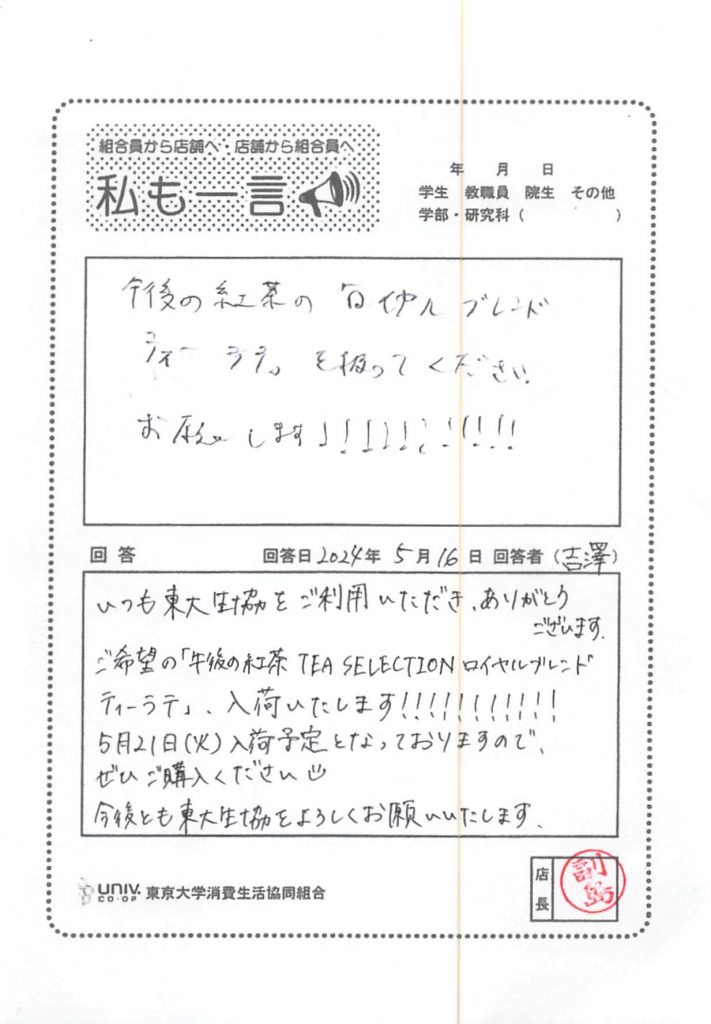 組合員から店舗へ・店舗から組合員へ
私も一言
年 月 日
学生 教職員 院生 その他
学部・研究科( )
午後の紅茶の ロイヤルブレンド
ティーラテ。を扱ってください
お願いします!!!!!!!!!!!
回答 回答日2024年 5月16日 回答者(吉澤)
いつも東大生協をご利用いただき、ありがとう
ございます。
ご希望の「午後の紅茶 TEA SELECTION ロイヤルブレンド
ティーラテ」、入荷いたします!!!!!!!!!!!
5月21日(火)入荷予定となっておりますので、
ぜひご購入ください
今後とも東大生協をよろしくお願いいたします。
UNIV. CO-OP 東京大学消費生活協同組合
店長